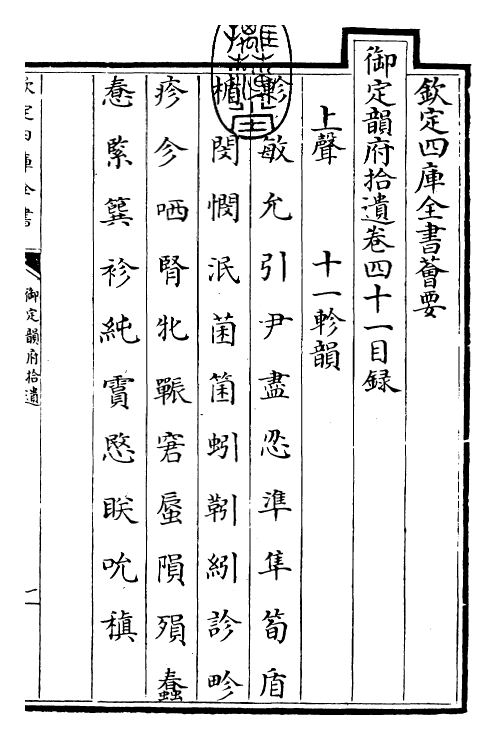 欽定四庫全書薈要
御定韻府拾遺卷四十一目録
上聲　十一軫韻
軫敏允引尹盡忍準隼筍盾
楯閔憫泯菌箘蚓靷紖診畛
疹㐱哂腎牝囅窘蜃隕殞蠢
惷緊簨袗純霣愍眹吮稹
欽定四庫全書
御定韻府拾遺
一